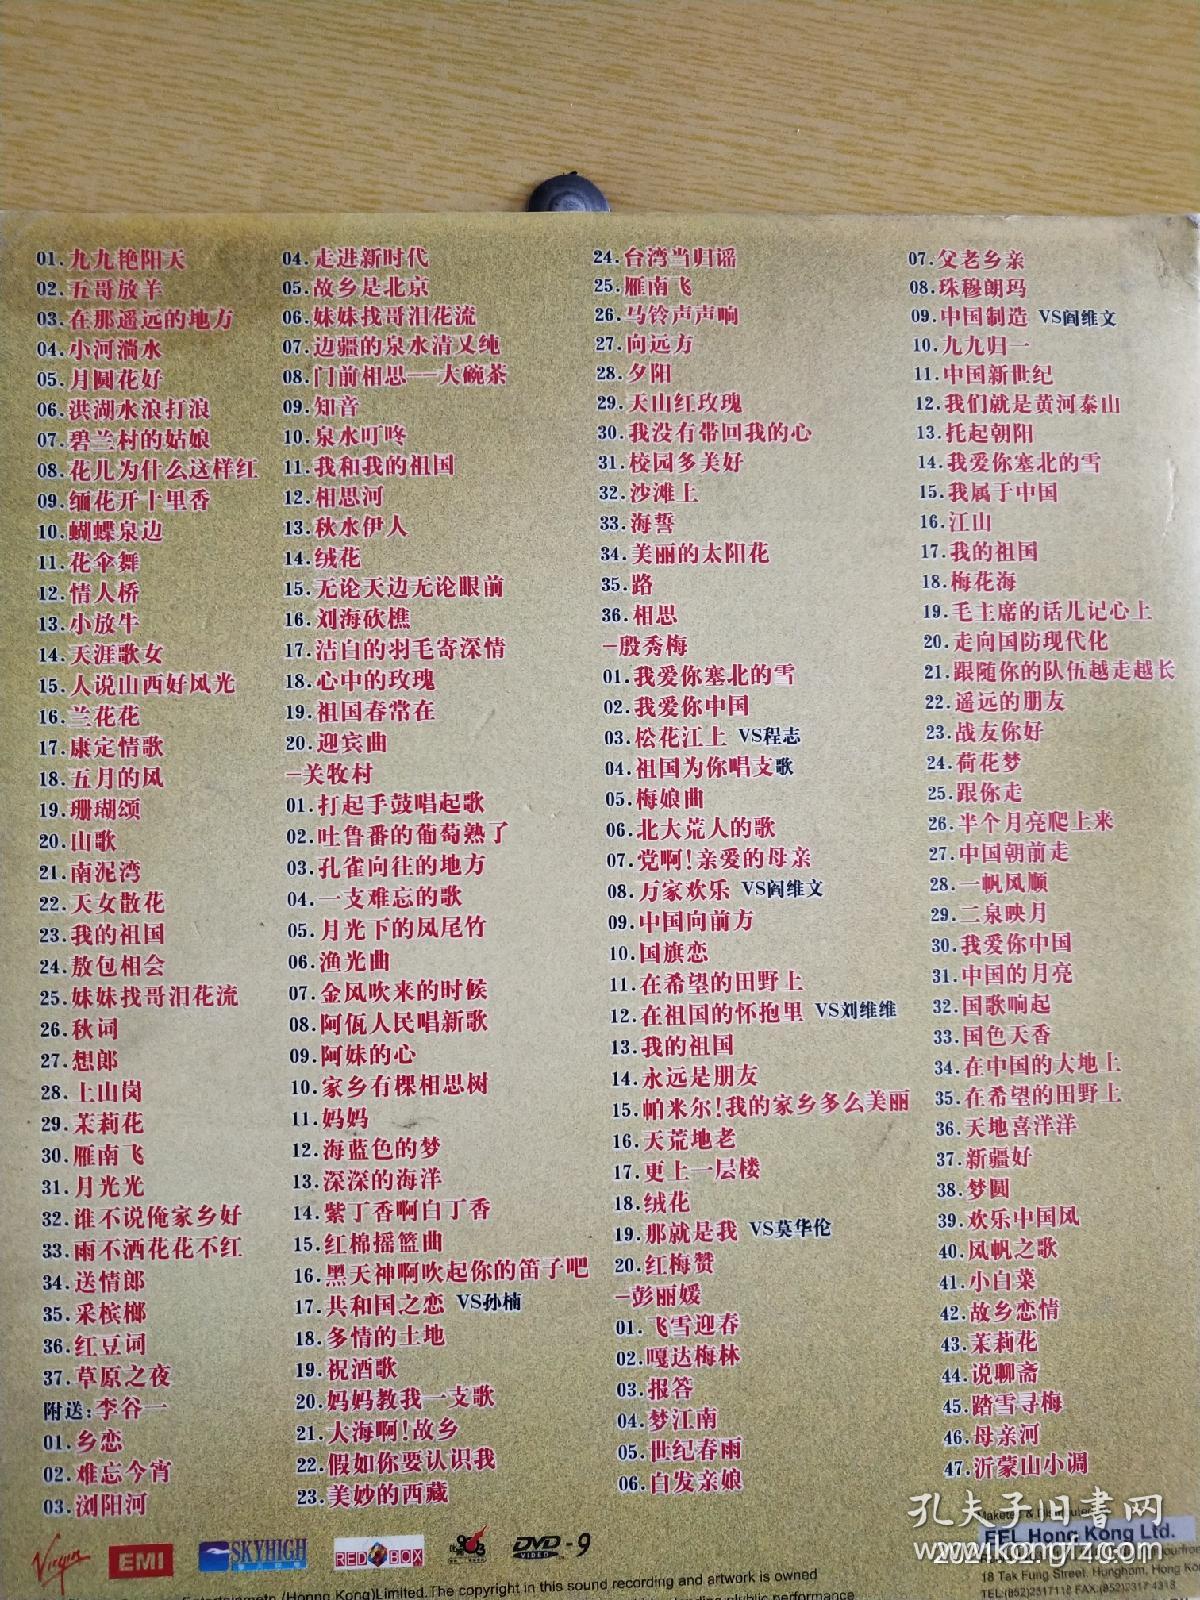 01.九九艳阳天
02.五哥放羊
03.在那遥远的地方
04.小河淌水
05.月圆花好
06.洪湖水浪打浪
07.碧兰村的姑娘
08.花儿为什么这样红
09.缅花开十里香
10.蝴蝶泉边
11.花伞舞
12.情人桥
13.小放牛
14.天涯歌女
15.人说山西好风光
16.兰花花
17.康定情歌
18.五月的风
19.珊瑚颂
20.山歌
21.南泥湾
22.天女散花
23.我的祖国
24.敖包相会
25.妹妹找哥泪花流
26.秋词
27.想郎
28.上山岗
29.茉莉花
30.雁南飞
31.月光光
32.谁不说俺家乡好
33.雨不洒花花不红
34.送情郎
35.采槟榔
36.红豆词
37.草原之夜
附送:李谷一
01.乡恋
02.难忘今宵
03.浏阳河
04.走进新时代
05.故乡是北京
06.妹妹找哥泪花流
07.边疆的泉水清又纯
08.门前相思——大碗茶
09.知音
10.泉水叮咚
11.我和我的祖国
12.相思河
13.秋水伊人
14.绒花
15.无论天边无论眼前
16.刘海砍樵
17.洁白的羽毛寄深情
18.心中的玫瑰
19.祖国春常在
20.迎宾曲
—关牧村
01.打起手鼓唱起歌
02.吐鲁番的葡萄熟了
03.孔雀向往的地方
04.一支难忘的歌
05.月光下的凤尾竹
06.渔光曲
07.金风吹来的时候
08.阿佤人民唱新歌
09.阿妹的心
10.家乡有棵相思树
11.妈妈
12.海蓝色的梦
13.深深的海洋
14.紫丁香啊白丁香
15.红棉摇篮曲
16.黑天神啊吹起你的笛子吧
17.共和国之恋 VS孙楠
18.多情的土地
19.祝酒歌
20.妈妈教我一支歌
21.大海啊!故乡
22.假如你要认识我
23.美妙的西藏
24.台湾当归谣
25.雁南飞
26.马铃声声响
27.向远方
28.夕阳
29.天山红玫瑰
30.我没有带回我的心
31.校园多美好
32.沙滩上
33.海誓
34.美丽的太阳花
35.路
36.相思
—殷秀梅
01.我爱你塞北的雪
02.我爱你中国
03.松花江上 VS程志
04.祖国为你唱支歌
05.梅娘曲
06.北大荒人的歌
07.党啊!亲爱的母亲
08.万家欢乐 VS阎维文
09.中国向前方
10.国旗恋
11.在希望的田野上
12.在祖国的怀抱里 VS刘维维
13.我的祖国
14.永远是朋友
15.帕米尔!我的家乡多么美丽
16.天荒地老
17.更上一层楼
18.绒花
19.那就是我 VS莫华伦
20.红梅赞
—彭丽媛
01.飞雪迎春
02.嘎达梅林
03.报答
04.梦江南
05.世纪春雨
06.白发亲娘
07.父老乡亲
08.珠穆朗玛
09.中国制造 VS阎维文
10.九九归一
11.中国新世纪
12.我们就是黄河泰山
13.托起朝阳
14.我爱你塞北的雪
15.我属于中国
16.江山
17.我的祖国
18.梅花海
19.毛主席的话儿记心上
20.走向国防现代化
21.跟随你的队伍越走越长
22.遥远的朋友
23.战友你好
24.荷花梦
25.跟你走
26.半个月亮爬上来
27.中国朝前走
28.一帆风顺
29.二泉映月
30.我爱你中国
31.中国的月亮
32.国歌响起
33.国色天香
34.在中国的大地上
35.在希望的田野上
36.天地喜洋洋
37.新疆好
38.梦圆
39.欢乐中国风
40.风帆之歌
41.小白菜
42.故乡恋情
43.茉莉花
44.说聊斋
45.踏雪寻梅
46.母亲河
47.沂蒙山小调
Virgin
EMI
SKYHIGH
RED BOX
DVD-9
VIDEO
(Honng Kong)Limited.The copyright in this sound recording and artwork is owned
EEL Hong Kong Ltd.
18 Tak Fung Street, Hunghom, Hong Ko
孔夫子旧书网